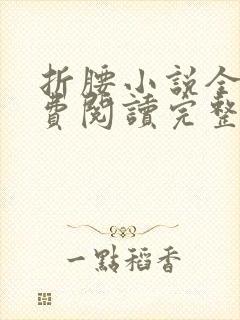 折腰小說全
費閱讀完整
一點稻香